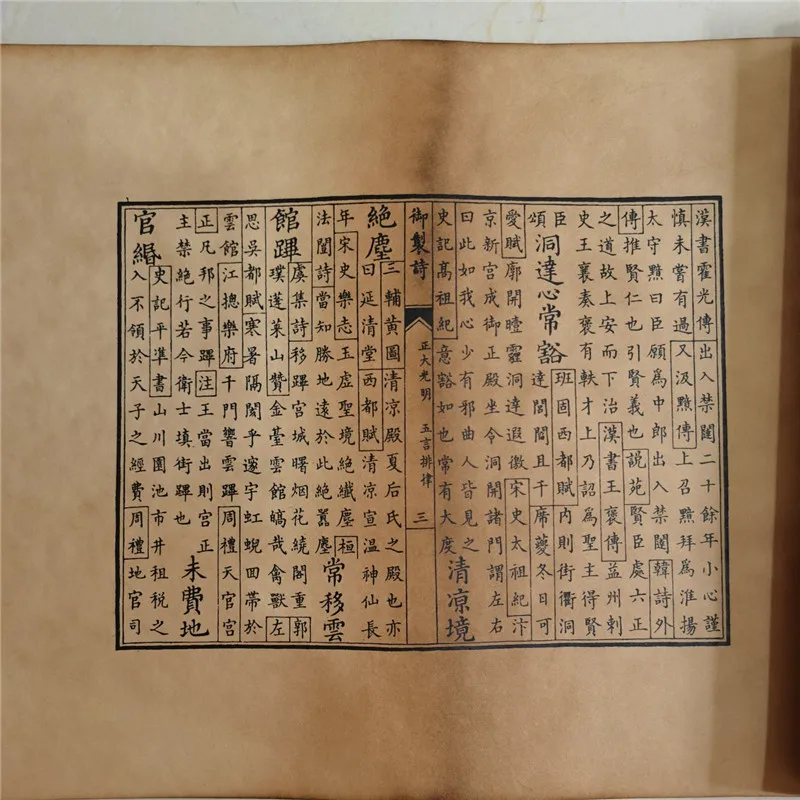 漢書霍光傳出入禁闥二十餘年小心謹
慎未嘗有過又汲黯傳上召黯拜為淮揚
太守黯曰臣願為中郎出入禁闥韓詩外
傳推賢仁也引賢義也說苑賢臣處六正
之道故上安而下治漢書王褒傳益州刺
史王襄奏褒有軼才上乃詔為聖主得賢
臣
頌
洞達心常豁
班固西都賦内則街衢洞
達閭閻且千席夔冬日可
愛賦廓開曀霾洞達遐徼宋史太祖紀汴
京新宫成御正殿坐令洞開諸門謂左右
曰此如我心少有邪曲人皆見之
史記髙祖紀意豁如也常有大度
清凉境
御製詩
正大光明 五言排律
三
絶塵
三輔黄圖清凉殿夏后氏之殿也亦
曰延清堂西都賦清凉宣温神仙長
年宋史樂志玉虚聖境絶纖塵桓
法闓詩當知勝地逺於此絶囂塵
常移雲
館蹕
虞集詩移蹕宫城曙烟花繞閣重郭
璞蓬萊山贊金臺雲館皜哉禽獸左
思吳都賦寒暑隔閡乎邃宇虹蜺囬帶於
雲館江摠樂府千門響雲蹕周禮天官宫
正凡邦之事蹕注王當出則宫正
主禁絶行若今衛士填街蹕也
未費地
官緡
史記平準書山川園池市井租税之
入不領於天子之經費周禮地官司